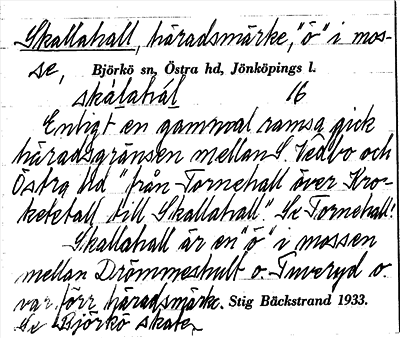 Skallahall, häradsmärke, "ö" i mos-
se, Björkö sn, Östra hd, Jönköpings l.
skálahál 16
Enligt en gammal ramsa gick
häradsgränsen mellan S. Vedbo och
Östra hd "från Tornehall över Kro-
keketall till Skallahall." Se Tornehall!
Skallahall är en "ö" i mossen
mellan Drömmeshult o. Tuveryd o.
var förr häradsmärke. Stig Bäckstrand 1933.
Se Björkö skate